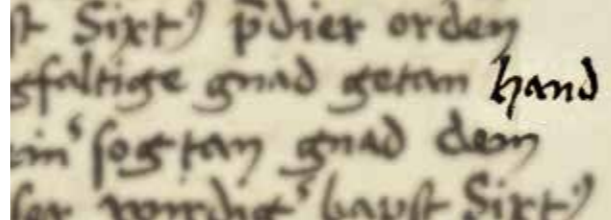 Sixtꝰ p̄dier orden
gfaltige gnad getan hand
sogtan gnad dem
wirdig bapst Sixtꝰ